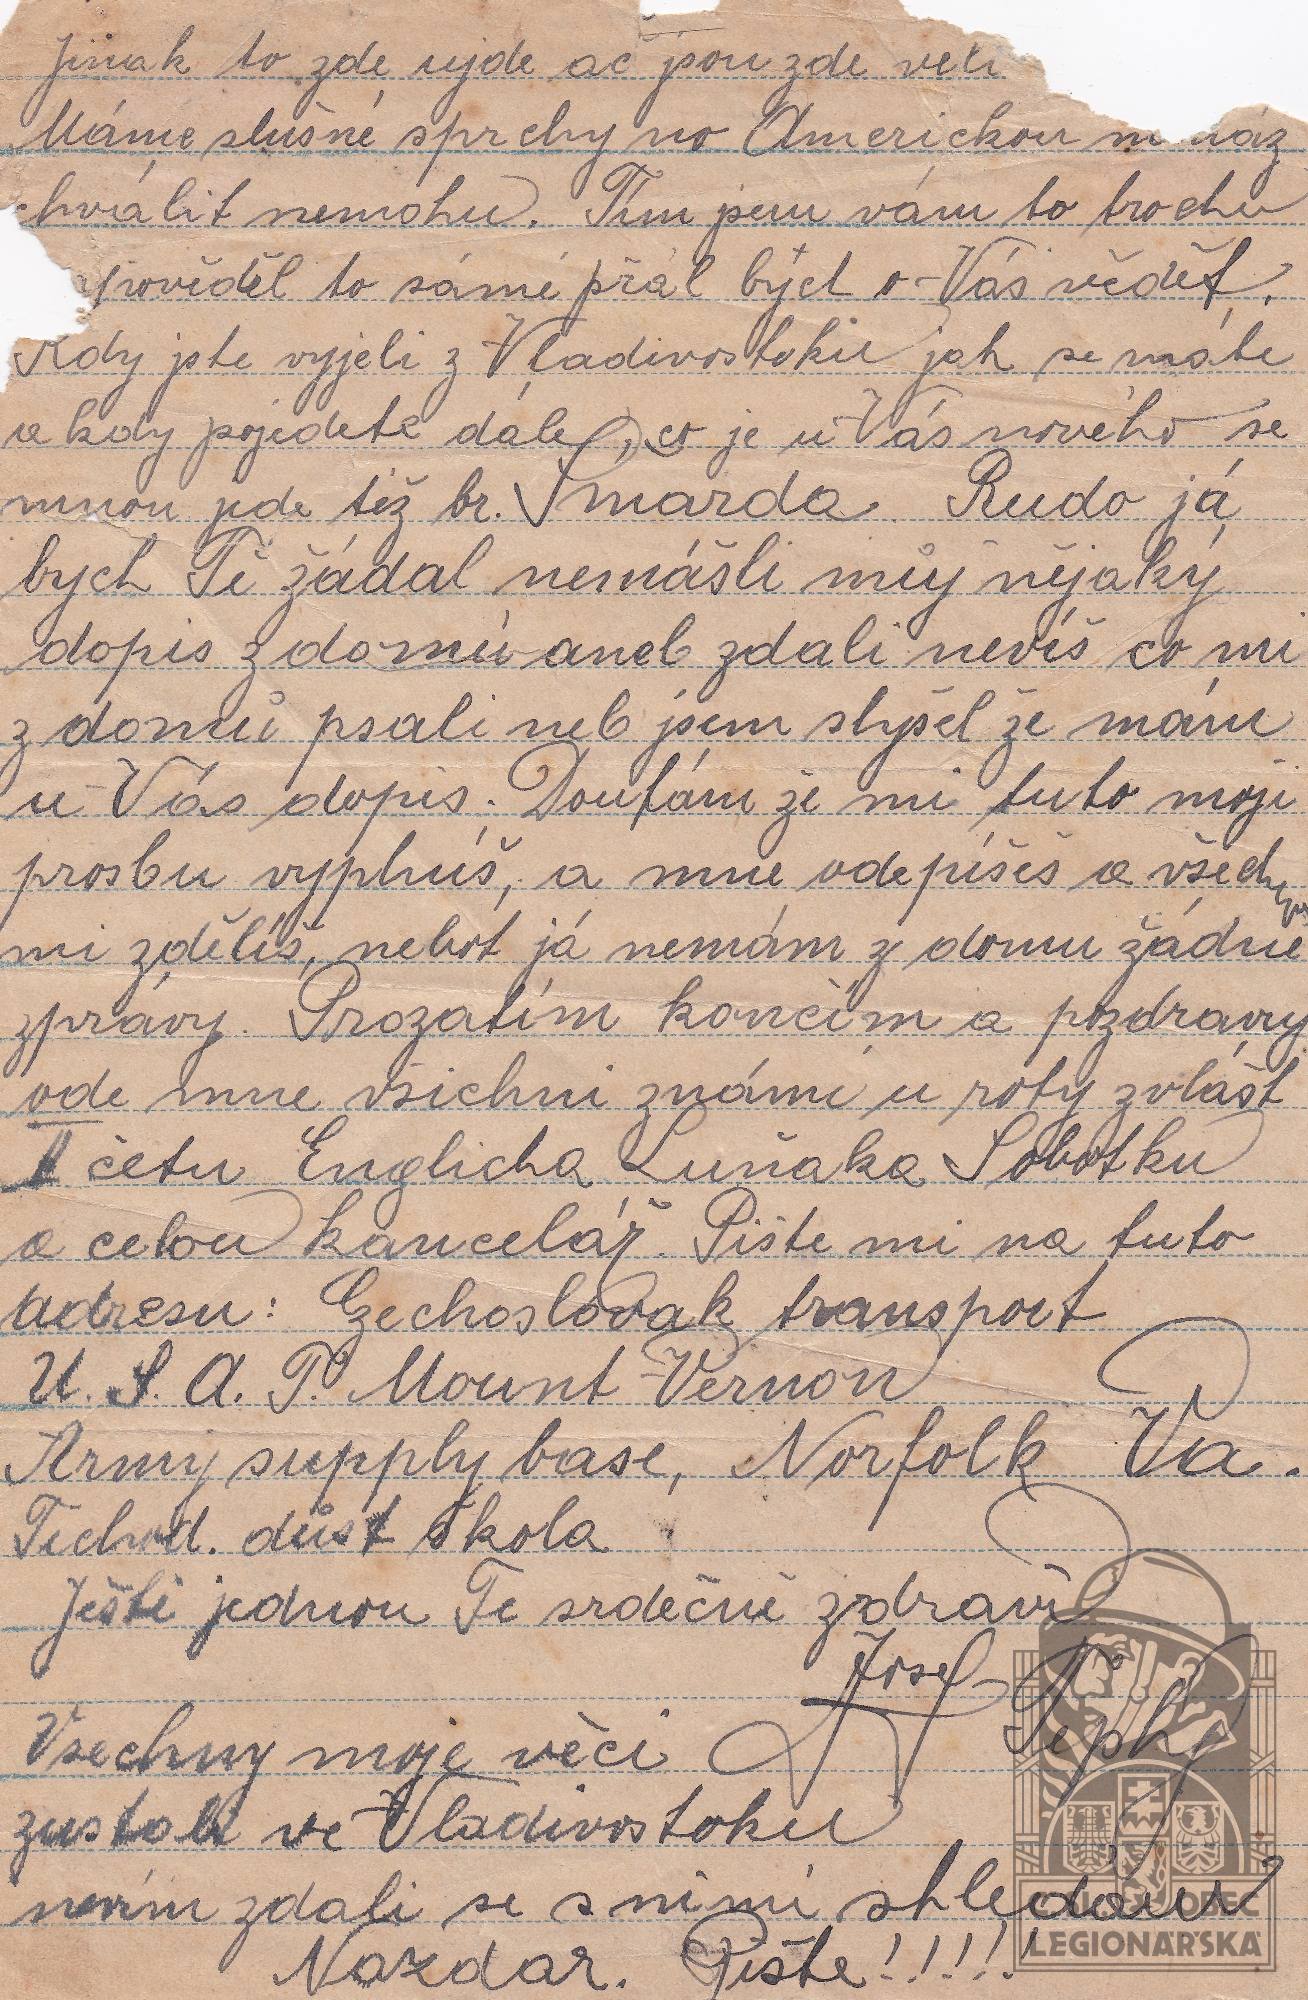 Jinak to zde ujde ač jsou zde
Máme slušné sprchy no Americkou
chválit nemohu. Tím jsem vám to trochu
pověděl to sámé přál bých o Vás vědět.
Kdy jste vyjeli z Vladivostoku jak se máte
a kdy pojedete dále, co je u Vás nového se
mnou jede též br. Šmarda. Rudo já
bych Tě žádal nemášli můj nějaký
dopis z domu aneb zdali nevíš co mi
z domů psali neb jsem slyšel že mám
u Vás dopis. Doufám že mi tuto moji
prosbu vyplníš, a mne odepíšeš a všechno
mi zdělíš, nebot já nemám z domu žádné
zprávy. Prozatím končím a pozdravy
ode mne všichni známí u roty zvlášt
II četu Englicha Luňáka Sobotku
a celou kancelář. Pište mi na tuto
adresu: Czechoslovak transport
U. S. A. T. Mount Vernon
Army supply base, Norfolk Va.
důst škola
Ješti jednou Te srdečně zdraví
Josef
Vsechny moje věci
zustali ve Vladivostoku
nevím zdali se s nimi shledám
Nazdar. Pište!!!!!!
OBEC
LEGIONÁŘSKÁ